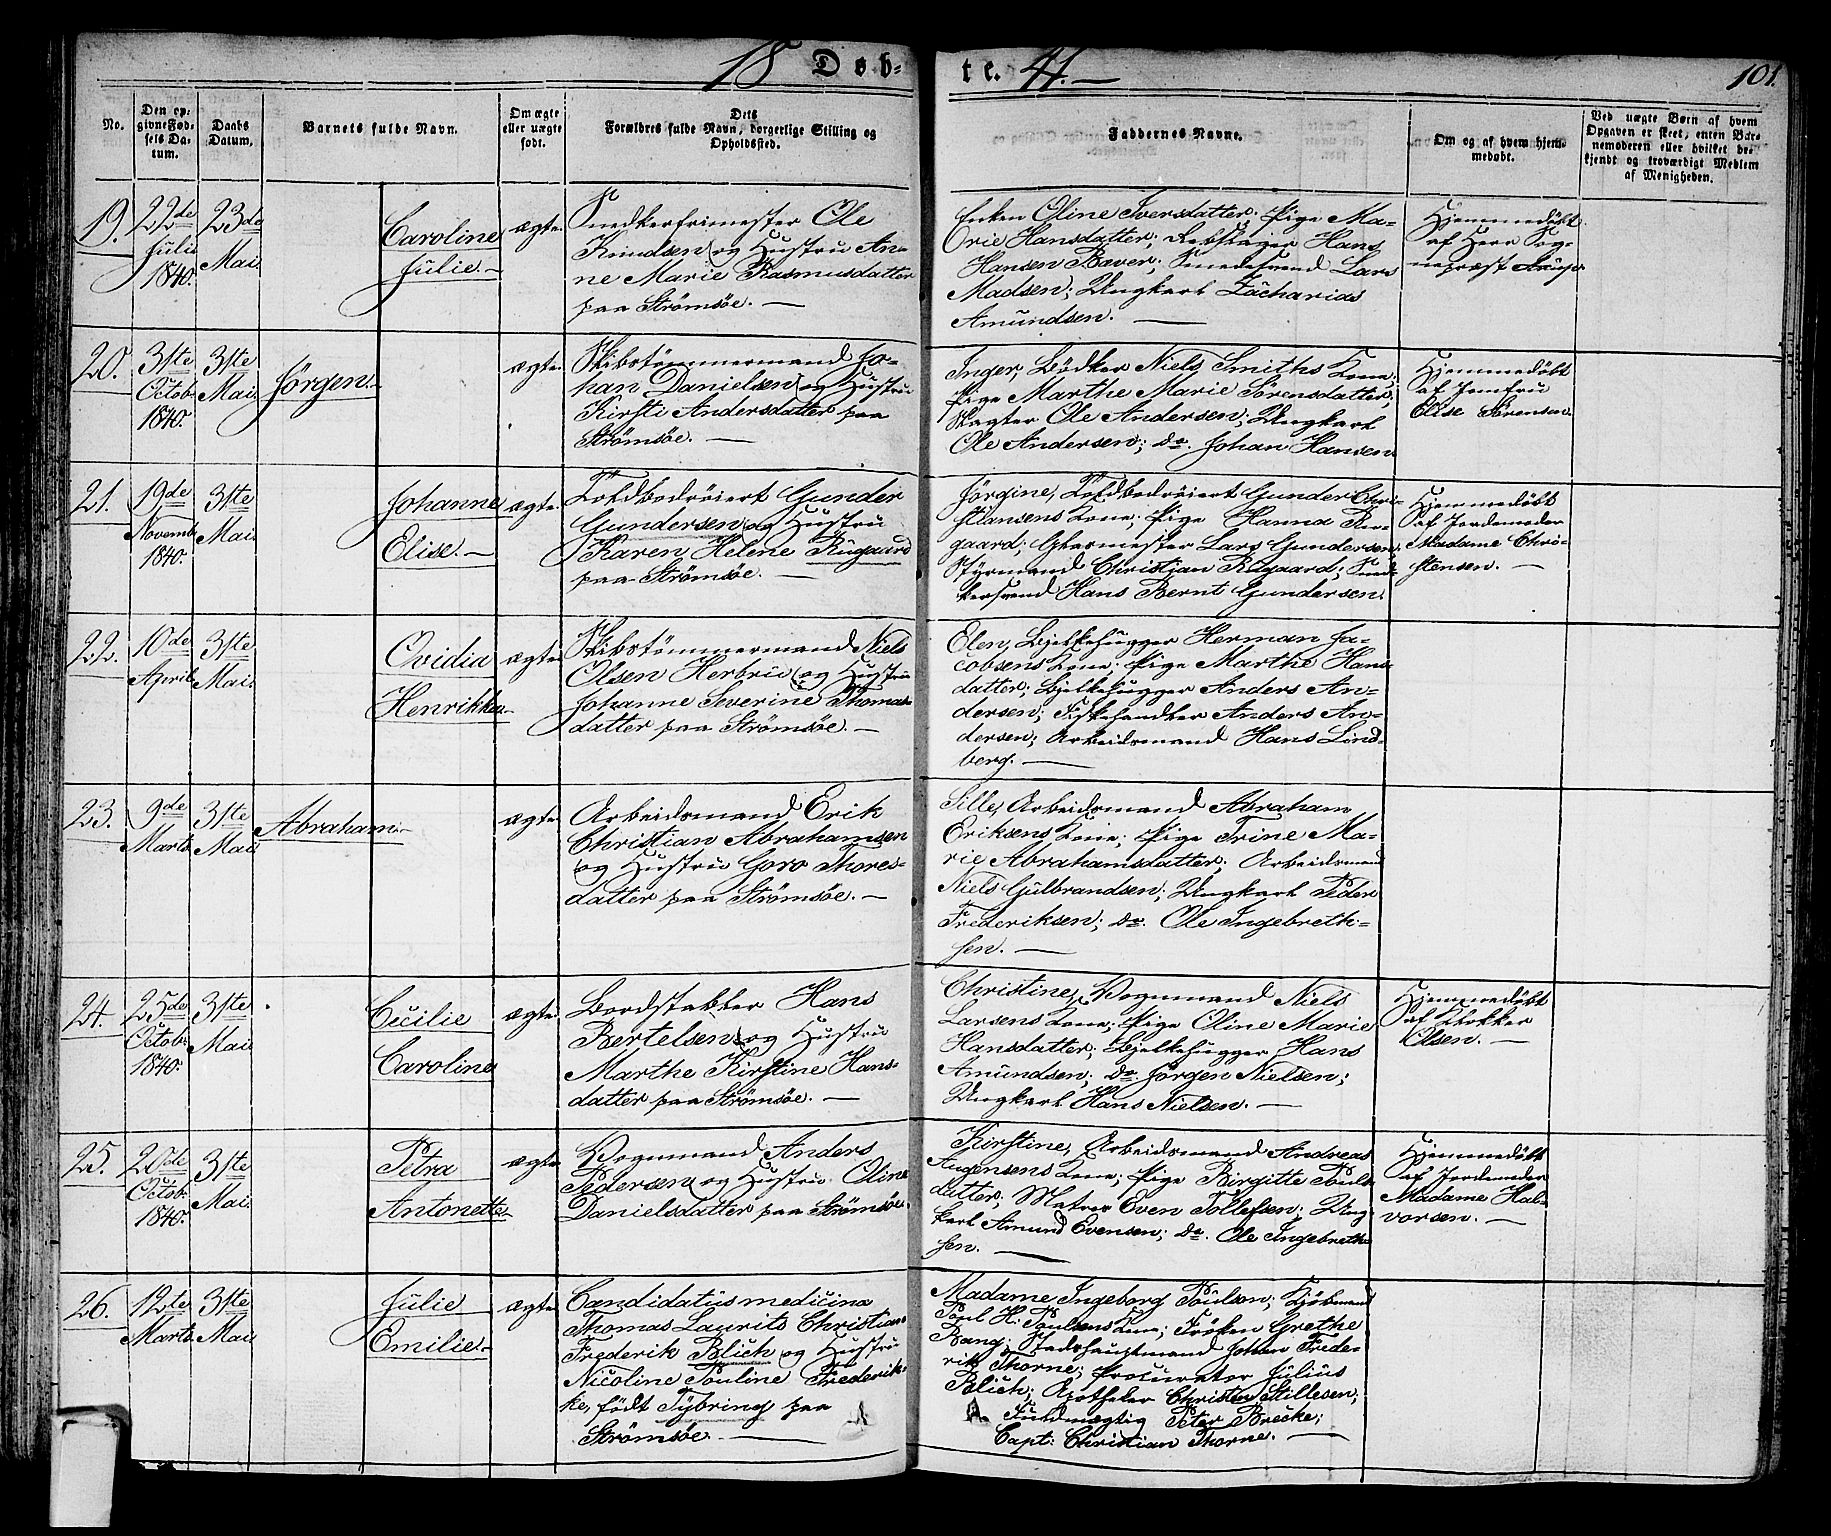 18 Døb-
te. 41. —
101.
No.
Den op-
givne Fød-
sels Da-
tum.
Daabs
Datum.
Barnets fulde Navn.
Om ægte
eller uægte
født.
Dets
Forældres fulde Navn, borgerlige Stilling og
Opholdssted.
Faddernes Navne.
Om og af hvem hjem-
medøbt.
Ved uægte Børn af hvem
Opgaven er skeet, enten Bar-
nemoderen eller hvilket be-
kjendt og troværdigt Medlem
af Menigheden.
19.
22de
Julii
1840.
23de
Mai.
Caroline
Julie. —
ægte.
Snedkerfrimester Ole
Knudsen og Hustru An-
ne Marie Rasmusdatter
paa Strømsøe. —
Enken Oline Iversdatter; Pige Ma-
rie Hansdatter; Rebslager Hans
Hansen Baver; Smedesvend Lars
Madsen; Ungkarl Zacharias
Amundsen. —
Hjemmedøbt
af Herr Sog-
nepræst
20.
31te
Octob:
1840.
31te
Mai.
Jørgen.
ægte.
Skibstømmermand Jo-
han Danielsen og Hustru
Kirsti Andersdatter paa
Strømsøe. —
Inger, Bødker Niels Smiths Kone;
Pige Marthe Marie Sørensdatter;
Slagter Ole Andersen; Ungkarl
Ole Andersen; do. Johan Hansen.
Hjemmedøbt
af Jomfru
Elise Sørensen.
21.
19de
Novemb.
1840.
31te
Mai.
Johanne
Elise. —
ægte.
Toldbedrøiert Gunder
Gundersen og Hustru
Karen Helene Rugaard
paa Strømsøe. —
Jørgine, Toldbedrøiert Gunder Chri-
stiansens Kone; Pige Hanna Ru-
gaard; Glasmester Lars Gundersen;
Styrmand Christian Rugaard; Sned-
kersvend Hans Bernt Gundersen.
Hjemmedøbt
af Jordemoder
Madame Chri-
stensen. —
22.
10de
April
31te
Mai.
Ovidia
Henrikka. —
ægte.
Skibstømmermand Niels
Olsen Herbru og Hustru
Johanne Severine Thomas-
datter paa Strømsøe. —
Elen, Bjelkehugger Herman Ja-
cobsens Kone; Pige Marthe Hans-
datter; Bjelkehugger Anders An-
dersen; Fiskehandler Anders An-
dersen; Arbeidsmand Hans Lind-
berg. —
23.
9de
Marts.
31te
Mai.
Abraham. —
ægte.
Arbeidsmand Erik
Christian Abrahamsen
og Hustru Goro Thores-
datter paa Strømsøe. —
Sille, Arbeidsmand Abraham
Eriksens Kone; Pige Trine Ma-
rie Abrahamsdatter; Arbeidsmand
Niels Gulbrandsen; Ungkarl Peder
Frederiksen; do. Ole Ingebreth-
sen. —
24.
25de
Octob:
1840.
31te
Mai.
Cicilie
Caroline
ægte.
Bordstabler Hans
Bertelsen og Hustru
Marthe Kirstine Hans-
datter paa Strømsøe. —
Christine, Vognmand Niels
Larsens Kone; Pige Oline Marie
Hansdatter; Bjelkehugger Hans
Amundsen; do. Jørgen Nielsen;
Ungkarl Hans Nielsen. —
Hjemmedøbt
af Klokker
Olsen. —
25.
20de
Octob:
1840.
31te
Mai.
Petra
Antonette
ægte.
Vognmand Anders
Pedersen og Hustru Oline
Danielsdatter paa Strømsøe.
Kirstine, Arbeidsmand Andreas
Augensens Kone; Pige Birgitte Pouls-
datter; Matros Even Tollefsen; Ung-
karl Amund Evensen; do. Ole Ingebreth-
sen. —
Hjemmedøbt
af Jordemoder
Madame Hal-
vorsen. —
26.
12te
Marts.
31te
Mai.
Julie
Emilie. —
ægte.
Candidatus medicina
Thomas Laurits Christian
Frederik Blich og Hustru
Nicoline Pouline Frederik-
ke, født Tybring paa
Strømsøe. —
Madame Ingeborg Poulsen; Kjøbmand
Poul H. Poulsens Kone; Frøken Grethe
Bang; Stadshauptmand Johan Frede-
rik Thorne; Procurator Julius
Blich; Apotheker Christen Stillesen;
Fuldmægtig Peter Brecke;
Capt: Christian Thorne. —